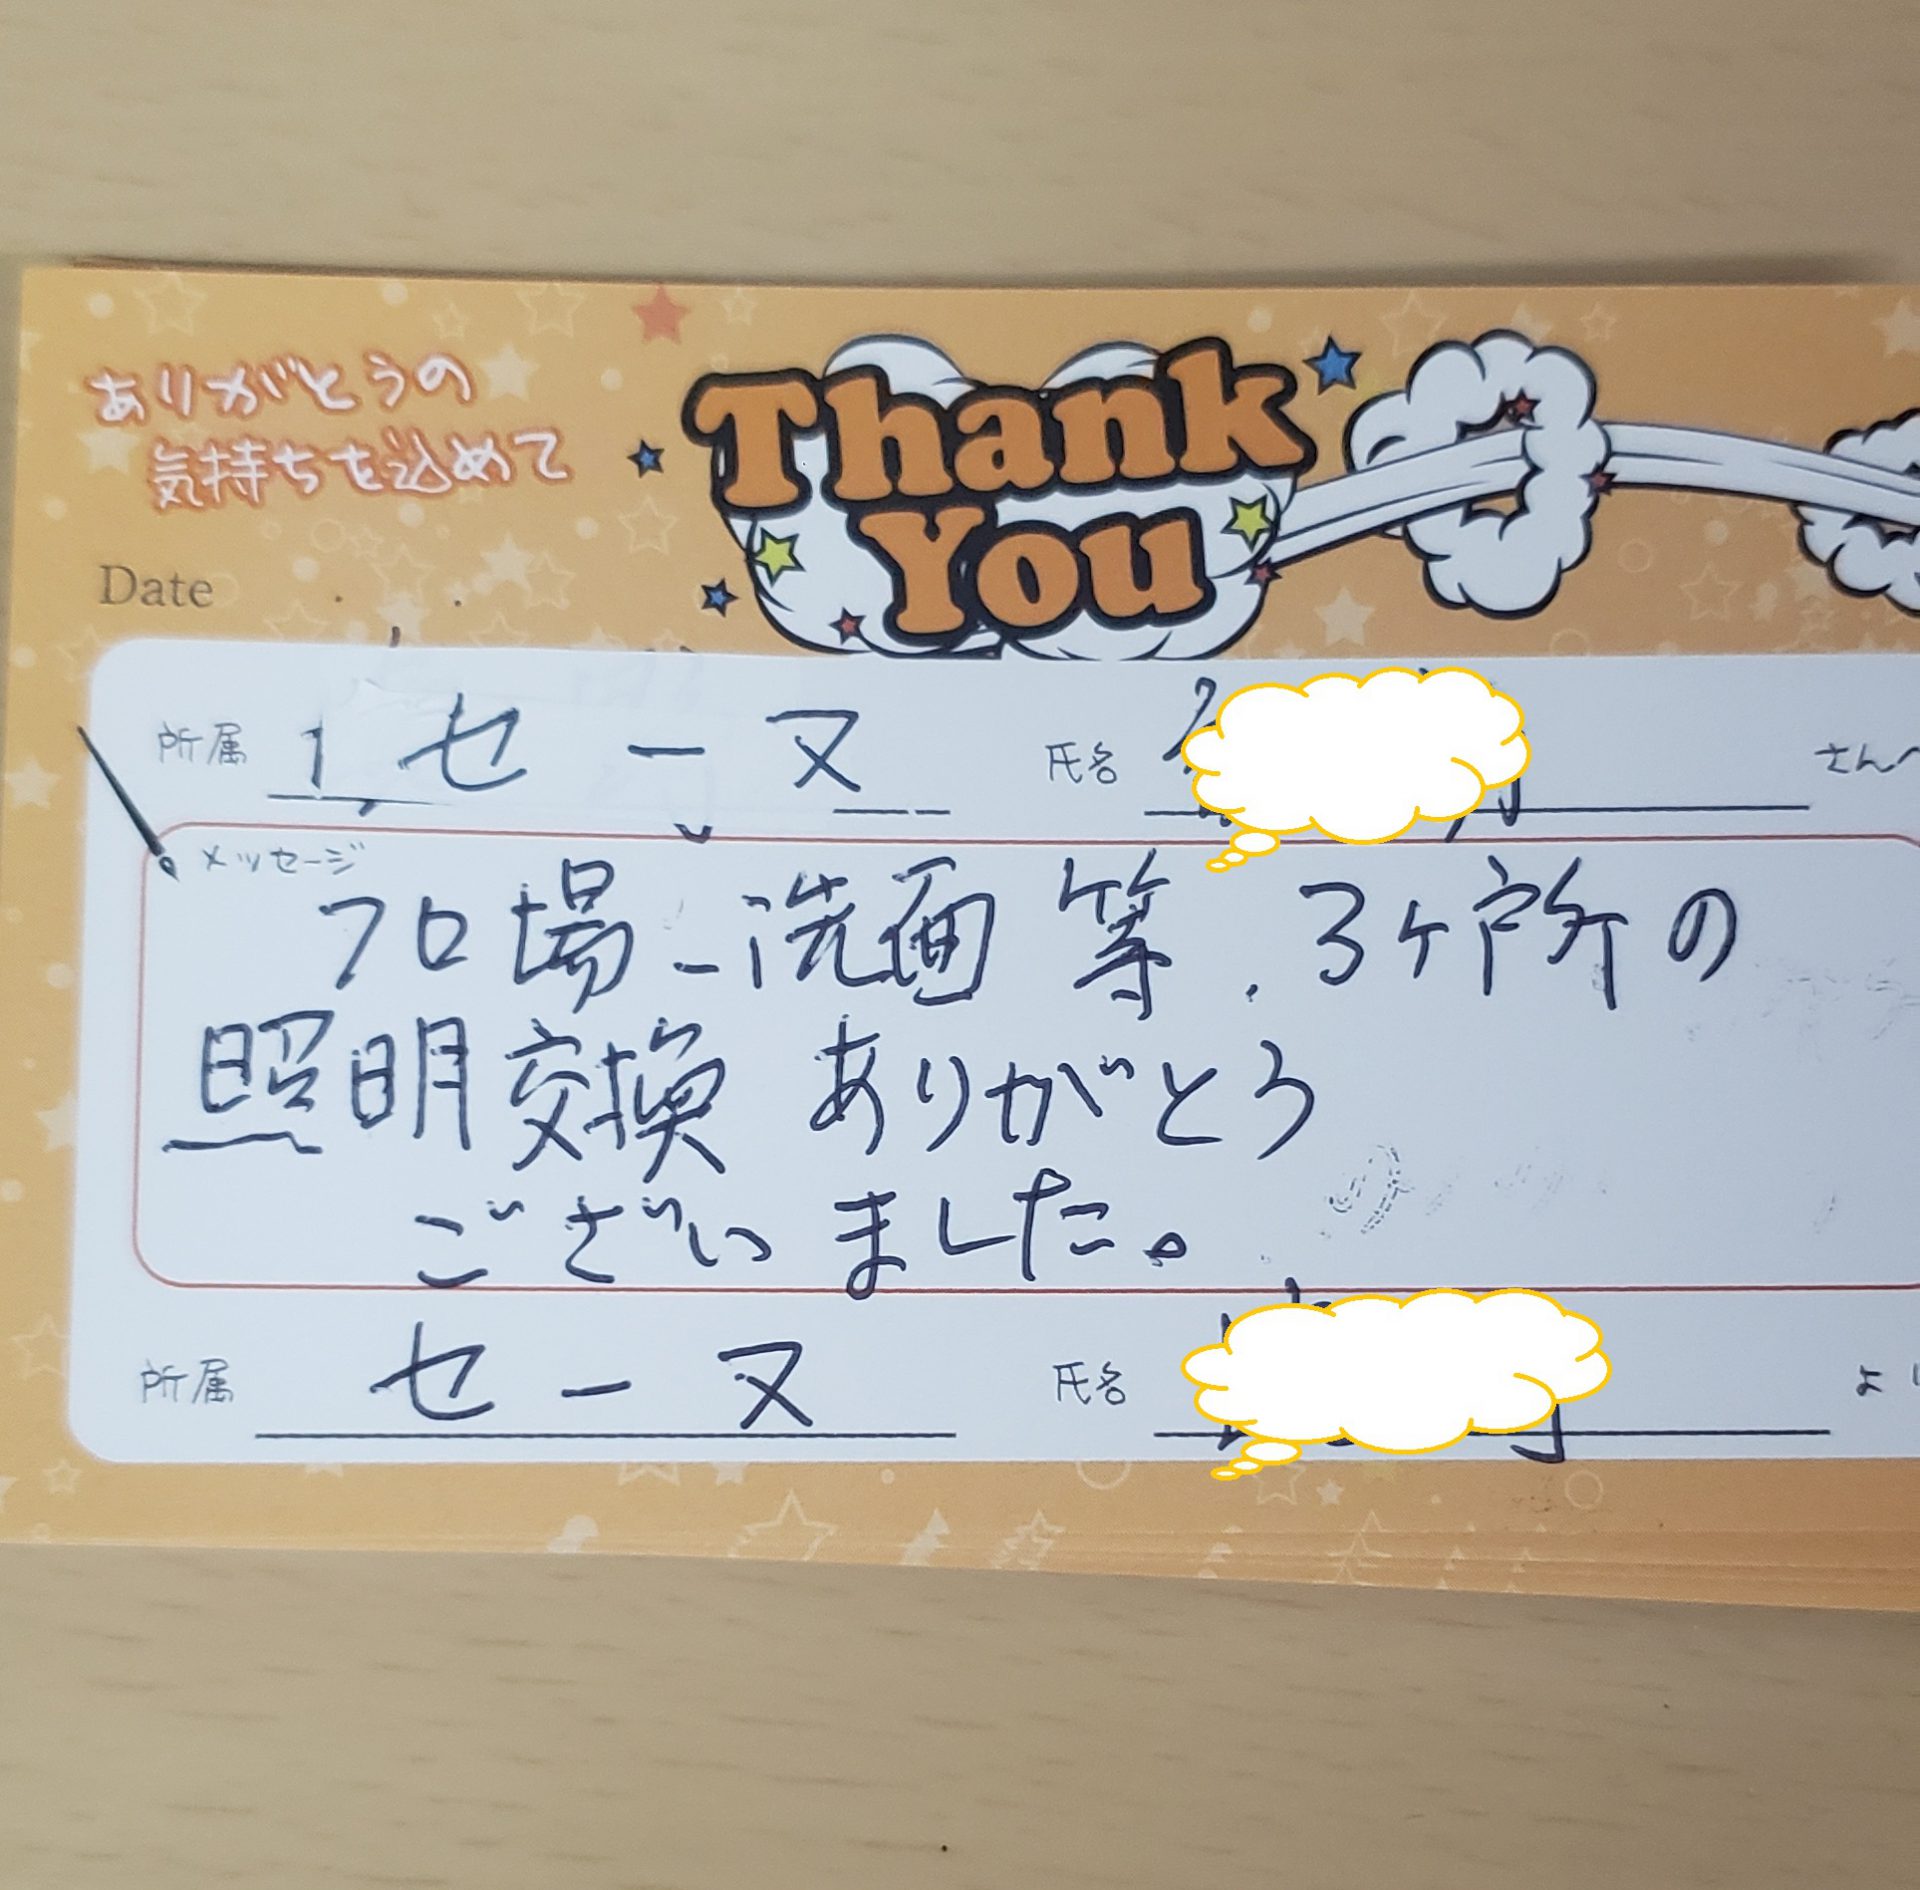 ありがとうの
気持ちを込めて
Thank
You
Date . .
所属 セーヌ 氏名 さんへ
メッセージ
フロ場、洗面等、3ヶ所の
照明交換ありがとう
ございました。
所属 セーヌ 氏名 より